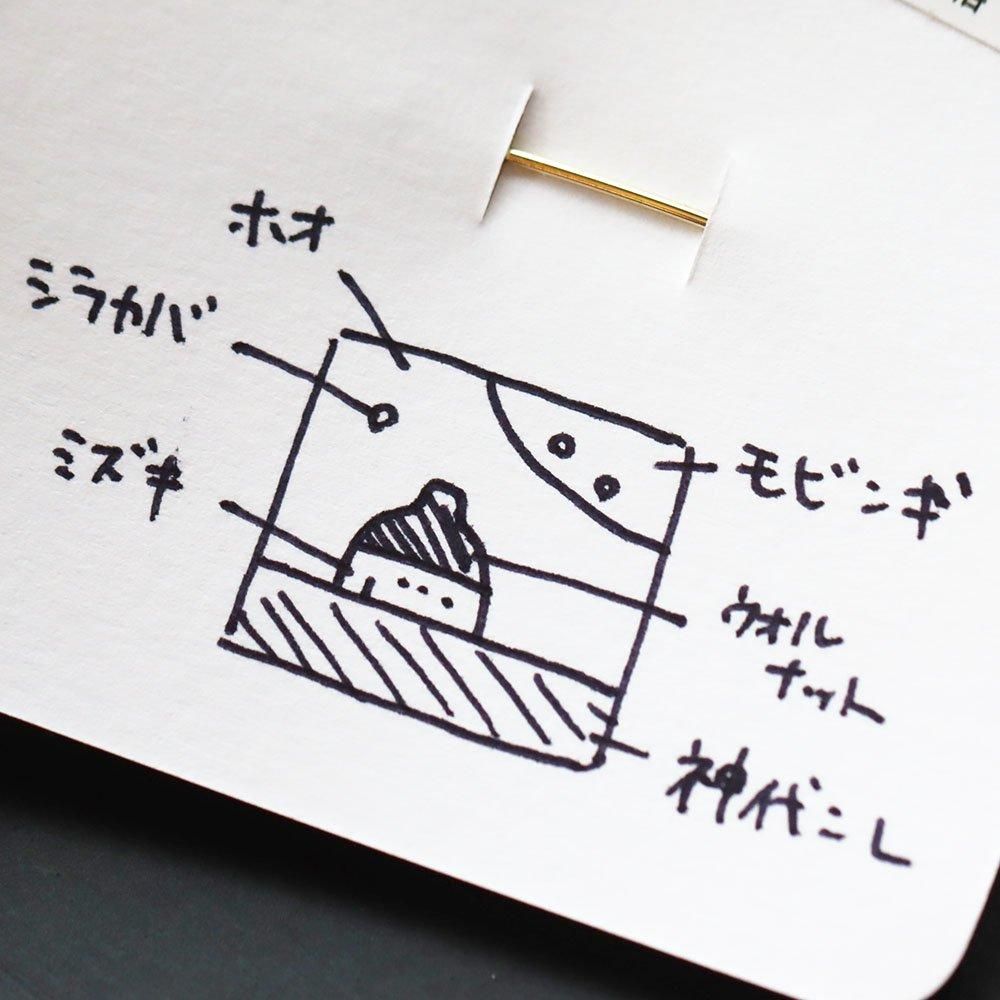 ホオ
シラカバ
ミズキ
モビンギ
ウオル
ナット
神代ニレ